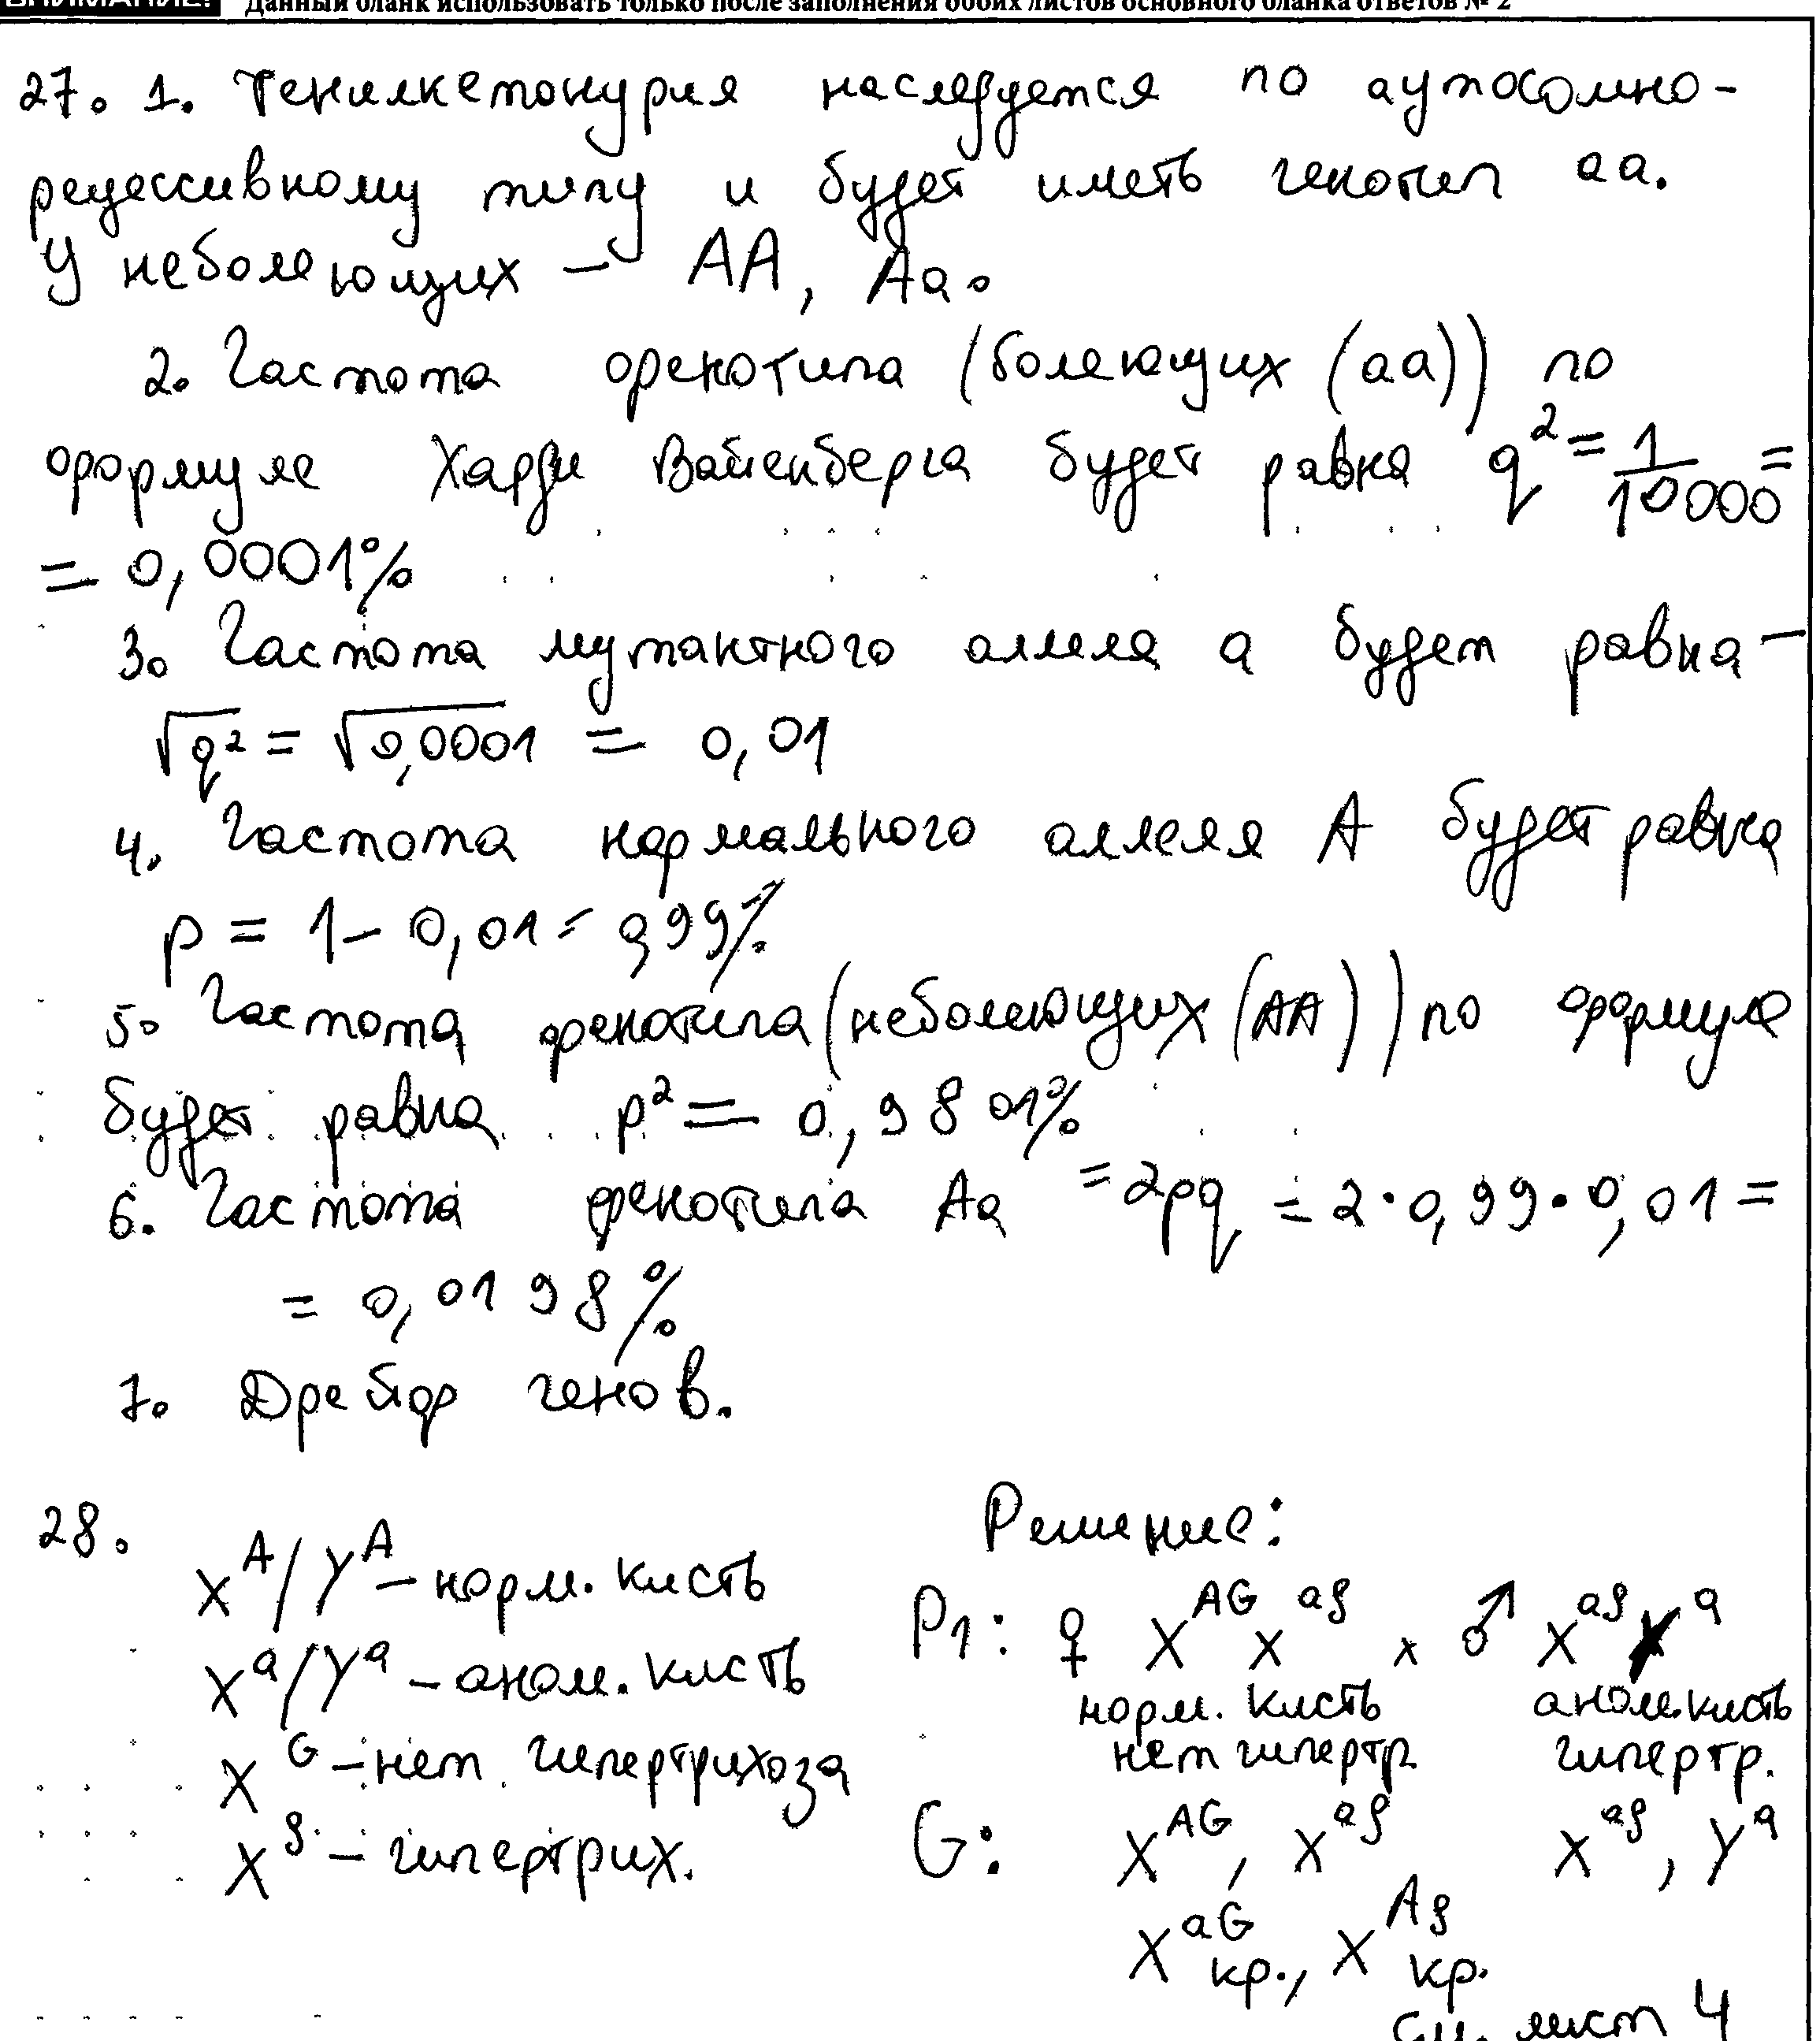 ВНИМАНИЕ! Данный бланк использовать только после заполнения обоих листов основного бланка ответов № 2
27. 1. Фенилкетонурия наследуется по аутосомно-
рецессивному типу и будет иметь генотип аа.
У неболеющих – АА, Аа.
2. Частота фенотипа (болеющих (аа)) по
формуле Харди Вайенберга будет равна q² = 1/10000 =
= 0,0001%
3. Частота мутантного аллеля а будет равна –
√q² = √0,0001 = 0,01
4. Частота нормального аллеля А будет равна
p = 1 – 0,01 = 0,99%
5. Частота фенотипа (неболеющих (АА)) по формуле
будет равна p² = 0,9801%
6. Частота фенотипа Аа = 2pq = 2·0,99·0,01 =
= 0,0198%
7. Дрейф генов.
28. Решение:
X^A/Y^A – норм. кисть
X^a/Y^a – аном. кисть
X^G – нет гипертрихоза
X^g – гипертрих.
P1: ♀ X^AG X^ag × ♂ X^ag Y^a
норм. кисть аном. кисть
нет гипертр. гипертр.
G: X^AG, X^ag X^ag, Y^a
X^aG кр., X^Ag кр.
См. лист 4